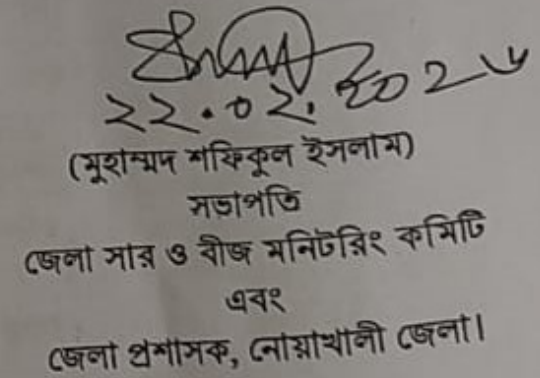 ২২.০২.২০২৬
(মুহাম্মদ শফিকুল ইসলাম)
সভাপতি
জেলা সার ও বীজ মনিটরিং কমিটি
এবং
জেলা প্রশাসক, নোয়াখালী জেলা।